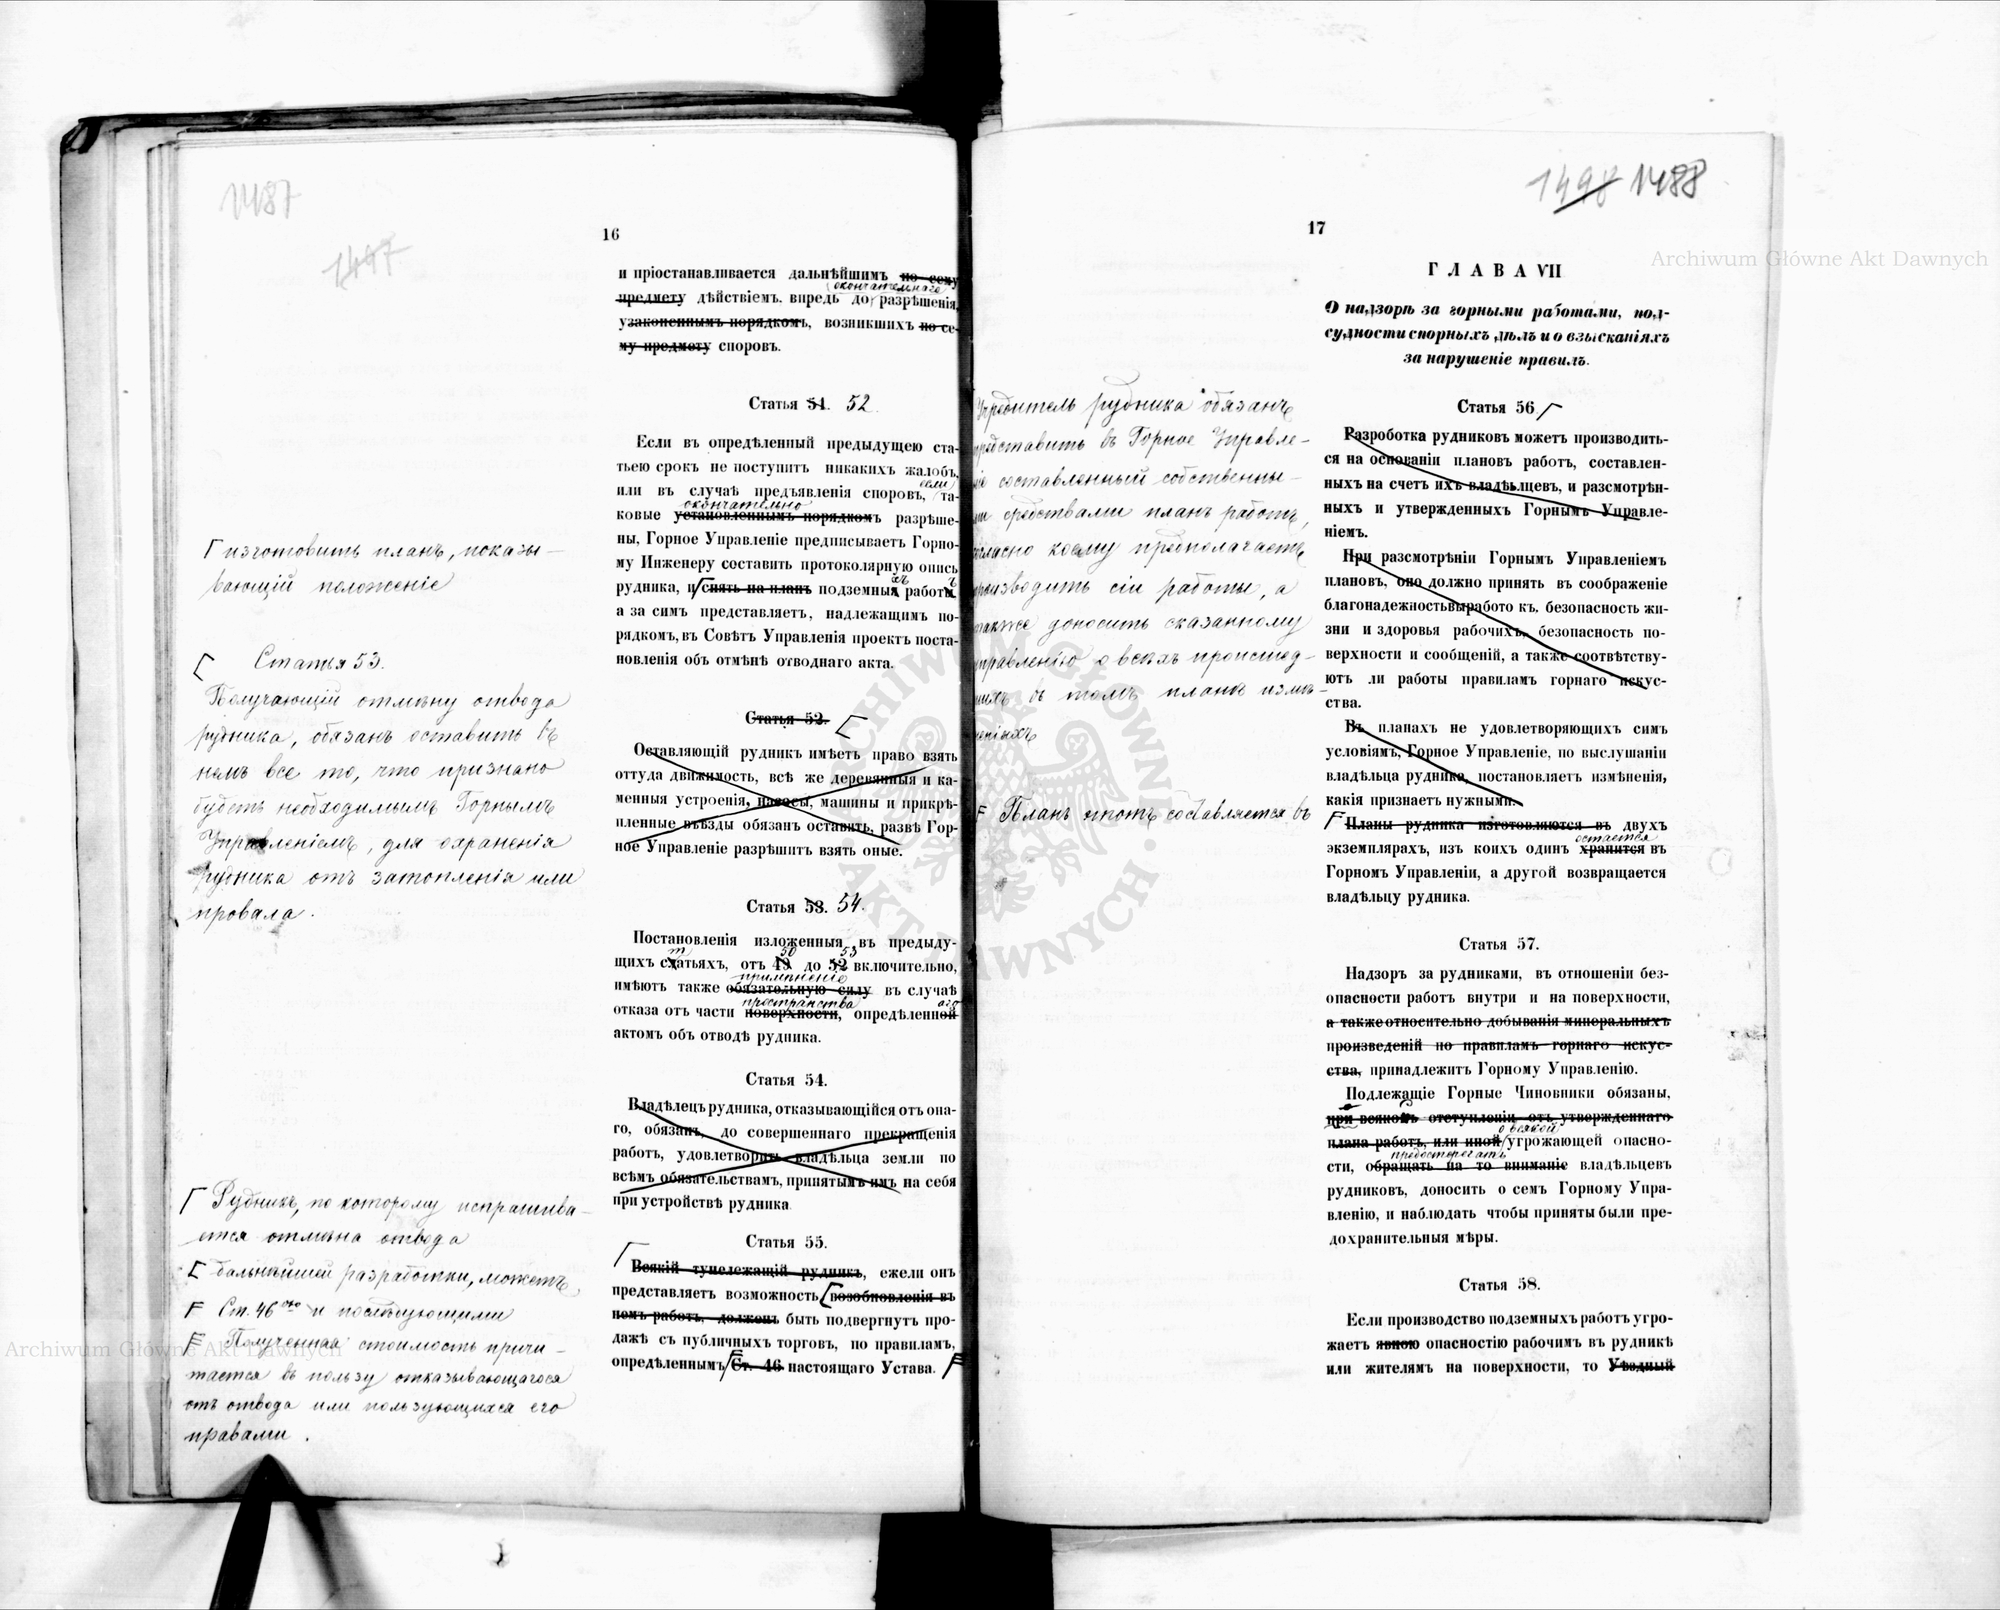 1487
1497
16
и пріостанавливается дальнѣйшимъ по сему
окончательнаго
предмету дѣйствіемъ. впредь до разрѣшенія,
узаконеннымъ порядкомъ, возникшихъ по се-
му предмету споровъ.
Статья 51. 52
Если въ опредѣленный предыдущею ста-
тьею срокъ не поступитъ никакихъ жалобъ,
если
или въ случаѣ предъявленія споровъ, та-
окончательно
ковые установленнымъ порядкомъ разрѣше-
ны, Горное Управленіе предписываетъ Горно-
му Инженеру составить протоколярную опись
хъ ъ
рудника, и снять на планъ подземныя работы
а за симъ представляетъ, надлежащимъ по-
рядкомъ, въ Совѣтъ Управленія проектъ поста-
новленія объ отмѣнѣ отводнаго акта.
Статья 52.
Оставляющій рудникъ имѣетъ право взять
оттуда движимость, всѣ же деревянныя и ка-
менныя устроенія, насосы, машины и прикрѣ-
пленные въѣзды обязанъ оставить, развѣ Гор-
ное Управленіе разрѣшитъ взять оные.
Статья 53. 54.
Постановленія изложенныя въ предыду-
т 50 53
щихъ статьяхъ, отъ 49 до 52 включительно,
примѣненіе
имѣютъ также обязательную силу въ случаѣ
пространства аго
отказа отъ части поверхности, опредѣленной
актомъ объ отводѣ рудника.
Статья 54.
Владѣлецъ рудника, отказывающійся отъ она-
го, обязанъ, до совершеннаго прекращенія
работъ, удовлетворить владѣльца земли по
всѣмъ обязательствамъ, принятымъ имъ на себя
при устройствѣ рудника
Статья 55.
Всякій тунележащій рудникъ, ежели онъ
представляетъ возможность возобновленія въ
немъ работъ, долженъ быть подвергнутъ про-
дажѣ съ публичныхъ торговъ, по правиламъ,
опредѣленнымъ Ст. 46 настоящаго Устава.
изготовить планъ, показы-
вающій положеніе
Статья 53.
Получающій отмѣну отвода
рудника, обязанъ оставить въ
немъ все то, что признано
будетъ необходимымъ Горнымъ
Управленіемъ, для охраненія
рудника отъ затопленія или
провала.
Рудникъ, по которому испрашива-
ется отмѣна отвода
дальнѣйшей разработки, можетъ
Ст. 46 ою и послѣдующими
Полученная стоимость причи-
тается въ пользу отказывающагося
отъ отвода или пользующихся его
правами.
1498 1488
17
ГЛАВА VII
О надзорѣ за горными работами, под-
судности спорныхъ дѣлъ и о взысканіяхъ
за нарушеніе правилъ.
Статья 56
Разроботка рудниковъ можетъ производить-
ся на основаніи плановъ работъ, составлен-
ныхъ на счетъ ихъ владѣьцевъ, и разсмотрѣн-
ныхъ и утвержденныхъ Горнымъ Управле-
ніемъ.
При разсмотрѣніи Горнымъ Управленіемъ
плановъ, оно должно принять въ соображеніе
благонадежностьвыработо къ. безопасность жи-
зни и здоровья рабочихъ, безопасность по-
верхности и сообщеній, а также соотвѣтству-
ютъ ли работы правиламъ горнаго искус-
ства.
Въ планахъ не удовлетворяющихъ симъ
условіямъ, Горное Управленіе, по выслушаніи
владѣльца рудника, постановляетъ измѣненія,
какія признаетъ нужными.
Планы рудника изготовляются въ двухъ
остается
экземплярахъ, изъ коихъ одинъ хранится въ
Горномъ Управленіи, а другой возвращается
владѣльцу рудника.
Статья 57.
Надзоръ за рудниками, въ отношеніи без-
опасности работъ внутри и на поверхности,
а также относительно добыванія минеральныхъ
произведеній по правиламъ горнаго искус-
ства, принадлежитъ Горному Управленію.
Подлежащіе Горные Чиновники обязаны,
при всякомъ отступленіи отъ утвержденнаго
о всякой
плана работъ, или иной угрожающей опасно-
предостерегать
сти, обращать на то вниманіе владѣльцевъ
рудниковъ, доносить о семъ Горному Упра-
вленію, и наблюдать чтобы приняты были пре-
дохранительныя мѣры.
Статья 58.
Если производство подземныхъ работъ угро-
жаетъ явною опасностію рабочимъ въ рудникѣ
или жителямъ на поверхности, то Уѣздный
Учредитель рудника обязанъ
представить въ Горное Управле-
составленный собственны-
средствами планъ работъ,
согласно коему предполагаетъ
производить сіи работы, а
также доносить сказанному
управленію о всѣхъ происшед-
въ томъ планѣ измѣ-
неніяхъ
Планъ этотъ составляется въ
Archiwum Główne Akt Dawnych
Archiwum Główne Akt Dawnych
ARCHIWUM GŁÓWNE AKT DAWNYCH